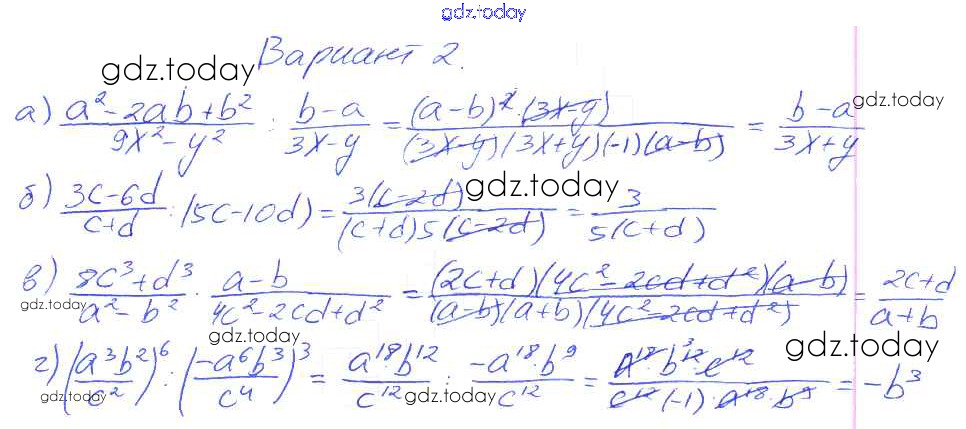 gdz.today
Вариант 2.
gdz.today
а) (a² - 2ab + b²)/(9x² - y²) : (b - a)/(3x - y) = ((a - b)² · (3x - y))/((3x - y)(3x + y)(-1)(a - b)) = (b - a)/(3x + y)
gdz.today
б) (3c - 6d)/(c + d) : (5c - 10d) = 3(c - 2d)/((c + d)5(c - 2d)) = 3/(5(c + d))
gdz.today
в) (8c³ + d³)/(a² - b²) · (a - b)/(4c² - 2cd + d²) = ((2c + d)(4c² - 2cd + d²)(a - b))/((a - b)(a + b)(4c² - 2cd + d²)) = (2c + d)/(a + b)
gdz.today
gdz.today
gdz.today
г) (a³b²/c²)⁶ : (-a⁶b³/c⁴)³ = a¹⁸b¹²/c¹² : -a¹⁸b⁹/c¹² = (a¹⁸ · b¹² · c¹²)/(c¹²(-1) · a¹⁸ · b⁹) = -b³
gdz.today
gdz.today